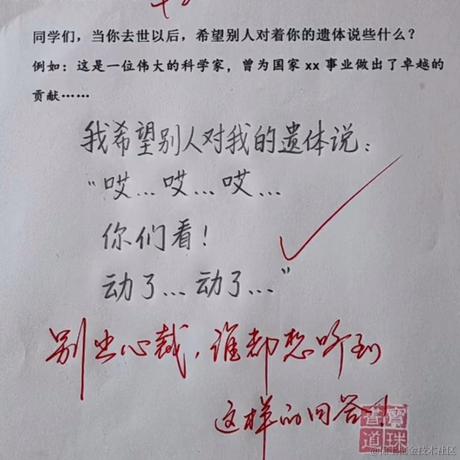 同学们，当你去世以后，希望别人对着你的遗体说些什么？
例如：这是一位伟大的科学家，曾为国家 xx 事业做出了卓越的
贡献……
我希望别人对我的遗体说：
“哎…哎…哎…
你们看！
动了…动了…”
别出心裁，谁都想听到
这样的回答！